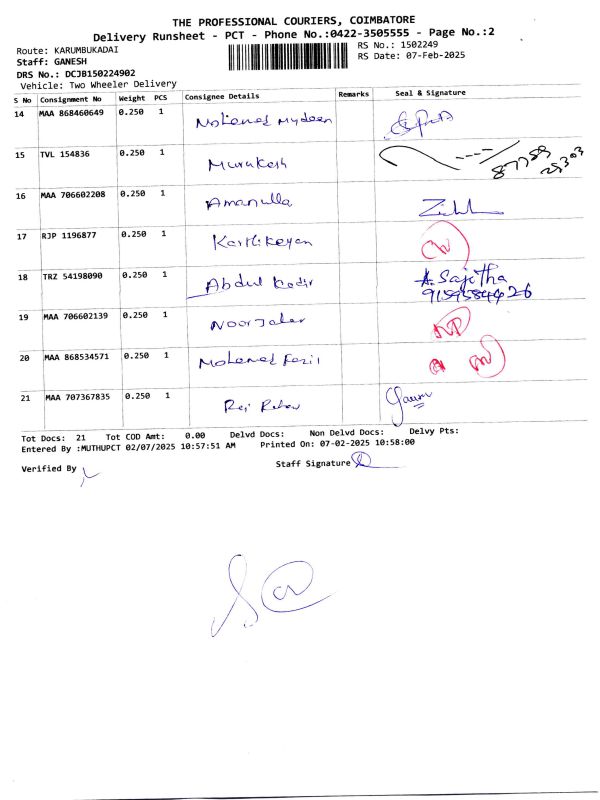 THE PROFESSIONAL COURIERS, COIMBATORE
Delivery Runsheet - PCT - Phone No.:0422-3505555 - Page No.:2
Route: KARUMBUKADAI RS No.: 1502249
Staff: GANESH RS Date: 07-Feb-2025
DRS No.: DCJB150224902
Vehicle: Two Wheeler Delivery
S No Consignment No Weight PCS Consignee Details Remarks Seal & Signature
14 MAA 868460649 0.250 1 Mohamed Mydeen
15 TVL 154836 0.250 1 Murukesh
16 MAA 706602208 0.250 1 Amanulla
17 RJP 1196877 0.250 1 Karthikeyan
18 TRZ 54198090 0.250 1 Abdul Kadir A. Sajitha
19 MAA 706602139 0.250 1 NP
20 MAA 868534571 0.250 1 Mohamed Fazil
21 MAA 707367835 0.250 1
Tot Docs: 21 Tot COD Amt: 0.00 Delvd Docs: Non Delvd Docs: Delvy Pts:
Entered By :MUTHUPCT 02/07/2025 10:57:51 AM Printed On: 07-02-2025 10:58:00
Verified By Staff Signature